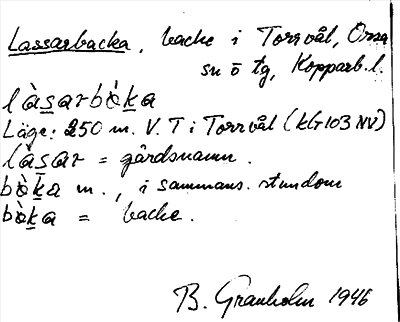 Lassarbacka, backe i Torrvål, Orsa
sn o tg, Kopparb. l.
làsarbòka
Läge: 250 m. V. T i Torrvål (kG103 NV)
làsar = gårdsnamn.
bòka m., i sammans. stundom
bòka = backe.
B. Granholm 1946